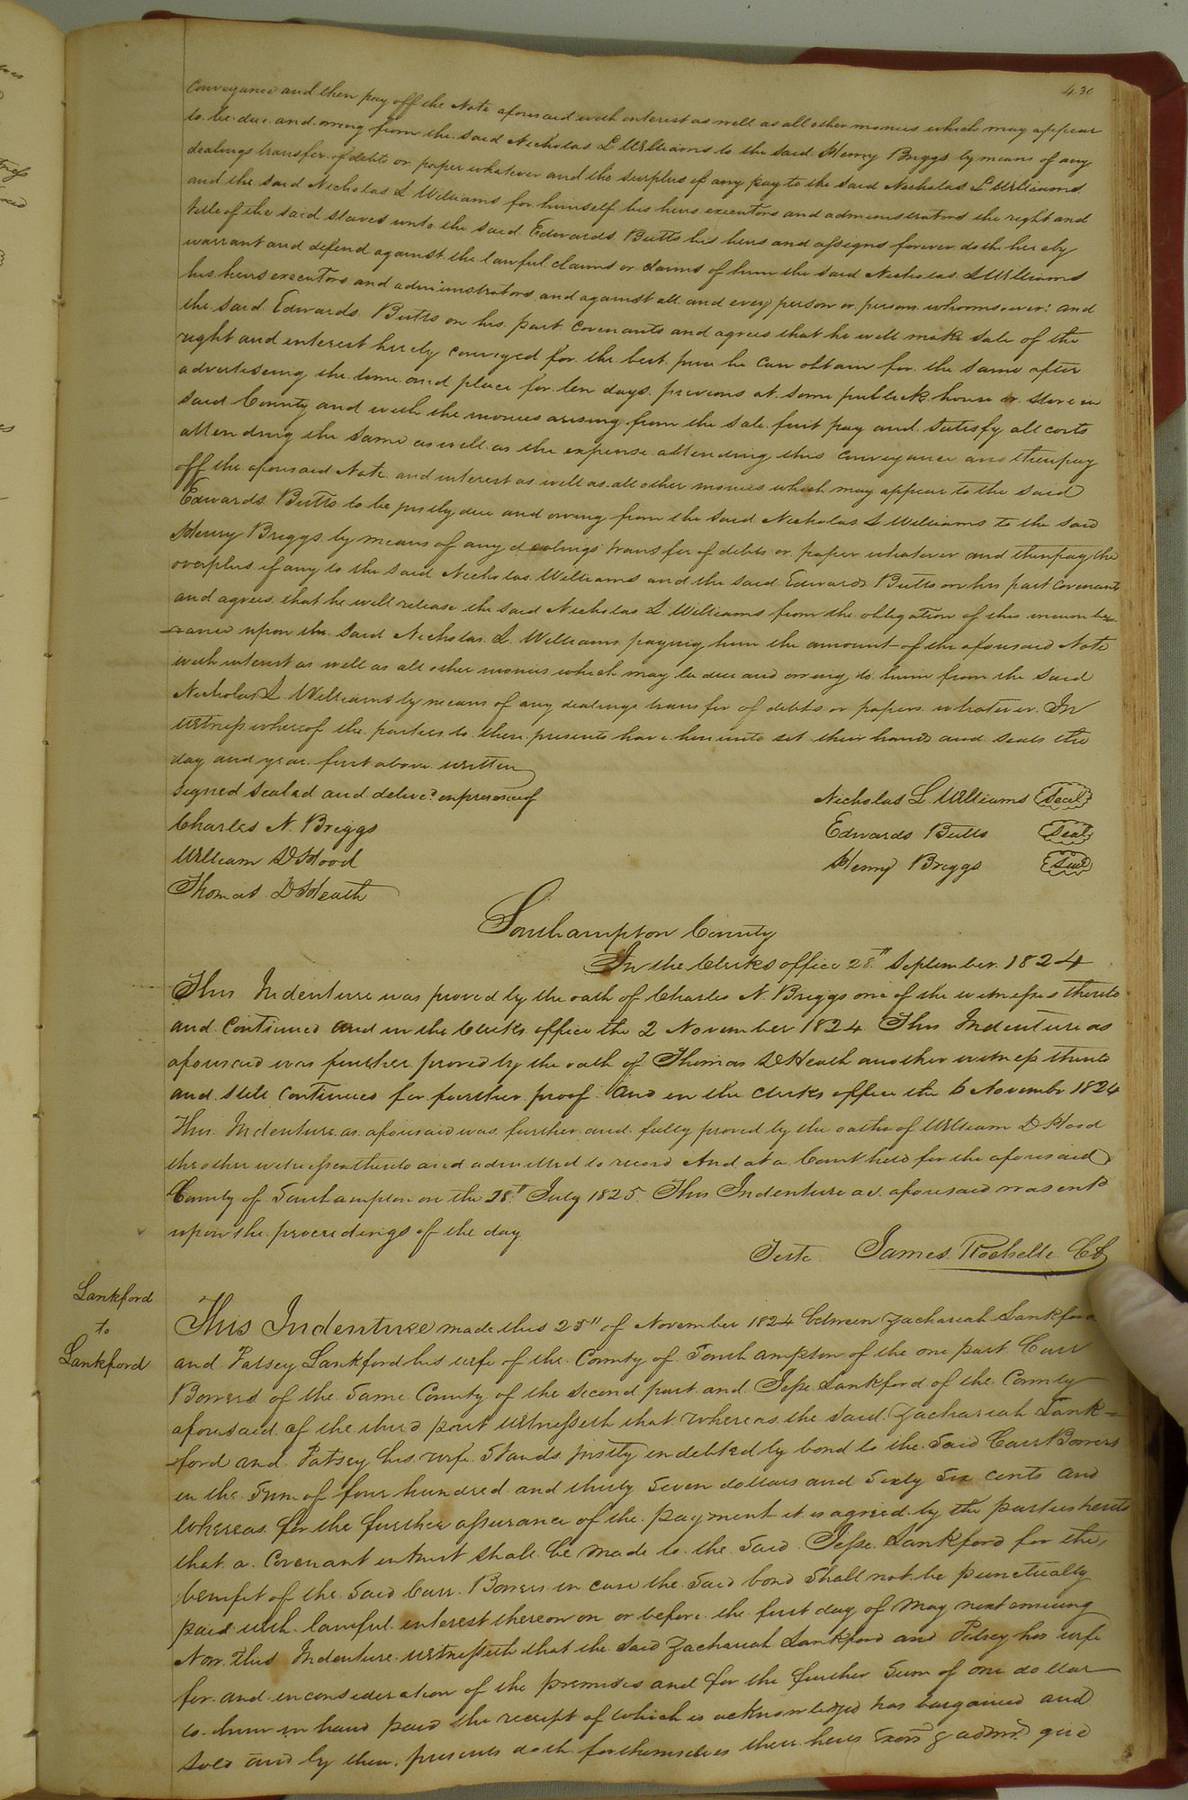 430
Conveyance and then pay off the Note aforesaid with interest as well as all other monies which may appear
to be due and owing from the said Nicholas L Williams to the said Henry Briggs by means of any
dealings transfer of debts or paper whatever and the surplus if any pay to the said Nicholas L Williams
and the said Nicholas L Williams for himself his heirs executors and administrators the right and
title of the said slaves unto the said Edwards Butts his heirs and assigns forever doth hereby
warrant and defend against the lawful claims or claims of him the said Nicholas L Williams
his heirs executors and administrators and against all and every person or persons whomsoever: and
the said Edwards Butts on his part covenants and agrees that he will make sale of the
right and interest hereby conveyed for the best price he can obtain for the same after
advertiseing the time and place for ten days previous at some publick house or store in
said County and with the monies arising from the sale first pay and satisfy all costs
attending the same as well as the expense attending this conveyance and then pay
off the aforesaid Note and interest as well as all other monies which may appear to the said
Edwards Butts to be justly due and owing from the said Nicholas L Williams to the said
Henry Briggs by means of any dealings transfer of debts or paper whatever and then pay the
overplus if any to the said Nicholas Williams and the said Edwards Butts on his part Covenants
and agrees that he will release the said Nicholas L Williams from the obligation of this incumbe
rance upon the said Nicholas L. Williams paying him the amount of the aforesaid Note
with interest as well as all other monies which may be due and owing to him from the said
Nicholas L Williams by means of any dealings transfer of debts or papers whatever. In
witness whereof the parties to these presents have hereunto set their hands and seals the
day and year first above written
Signed Sealed and delivd in presence of
Nicholas L Williams Seal
Charles N. Briggs
Edwards Butts Seal
William D Hood
Henry Briggs Seal
Thomas D Heath
Southampton County
In the Clerks office 28th September 1824
This Indenture was proved by the oath of Charles N. Briggs one of the witnesses thereto
and Continued and in the Clerks office the 2 November 1824 This Indenture as
aforesaid was further proved by the oath of Thomas D Heath another witness thereto
and still Continued for further proof. And in the clerks office the 6 November 1824
This Indenture as aforesaid was further and fully proved by the oath of William D Hood
the other witness thereto and admitted to record And at a Court held for the aforesaid
County of Southampton on the 18th July 1825. This Indenture as aforesaid was entd
upon the proceedings of the day
Teste James Rochelle CC
Lankford
to
Lankford
This Indenture made this 25" of November 1824 between Zachariah Lankford
and Patsey Lankford his wife of the County of Southampton of the one part Carr
Bowers of the same County of the second part and Jesse Lankford of the County
aforesaid of the third part witnesseth that whereas the said Zachariah Lank-
ford and Patsey his wife Stands justly indebted by bond to the said Carr Bowers
in the sum of four hundred and thirty Seven dollars and sixty six cents and
whereas for the further assurance of the payment it is agreed by the parties hereto
that a Covenant in trust shall be made to the said Jesse Lankford for the
benefit of the said Carr Bowers in case the said bond shall not be punctually
paid with lawful interest thereon on or before the first day of May next ensuing
Now this Indenture witnesseth that the said Zachariah Lankford and Patsey his wife
for and in consideration of the premises and for the further sum of one dollar
to him in hand paid the receipt of which is acknowledged has bargained and
sold and by these presents doth for themselves their heirs Exors & admrs give